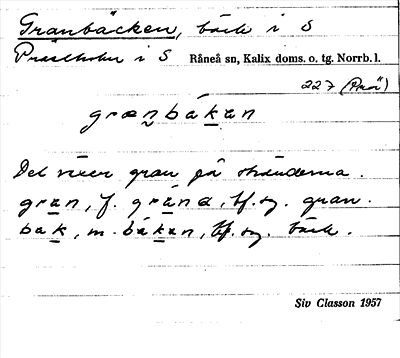 Granbäcken, bäck i S
Prästholm i S Råneå sn, Kalix doms. o. tg. Norrb. l.
227 (Prä)
grænbákan
Det växer gran på stränderna.
gran, f. gràna, bf. sg. gran.
bak, m. bákan, bf. sg. bäck.
Siv Classon 1957